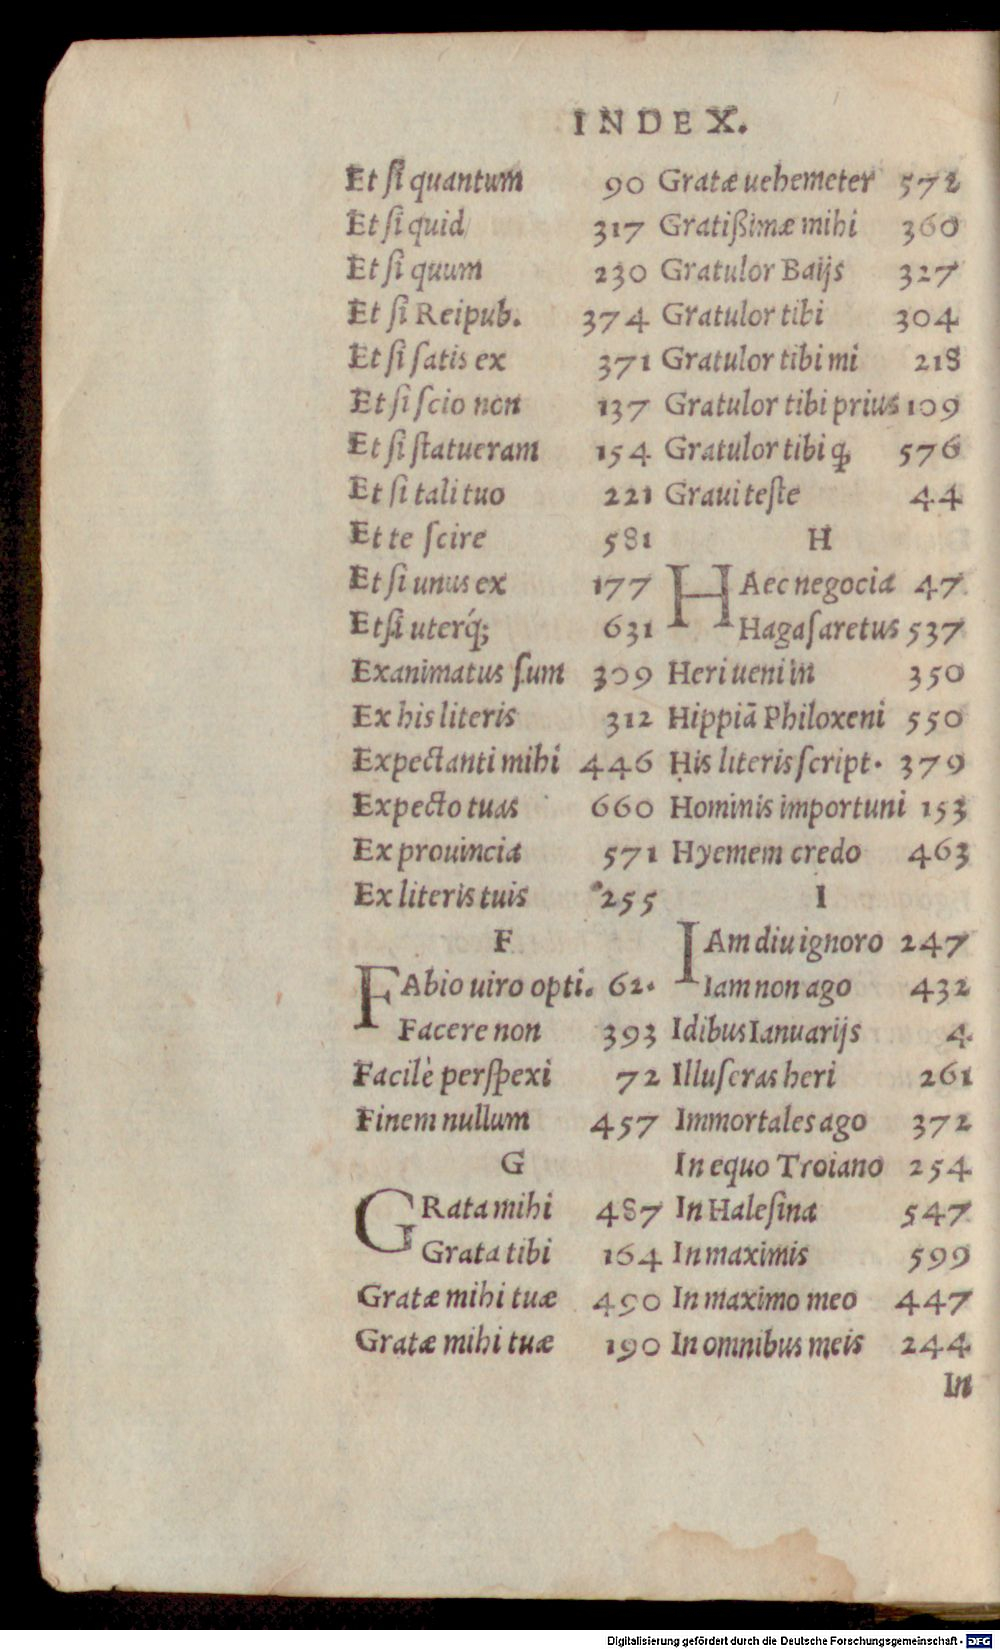 INDEX.
Et ſi quantum 90
Et ſi quid 317
Et ſi quum 230
Et ſi Reipub. 374
Et ſi ſatis ex 371
Et ſi ſcio non 137
Et ſi ſtatueram 154
Et ſi tali tuo 221
Et te ſcire 581
Et ſi unus ex 177
Etſi uterq́; 631
Exanimatus ſum 309
Ex his literis 312
Expectanti mihi 446
Expecto tuas 660
Ex prouincia 571
Ex literis tuis 255
F
FAbio uiro opti. 62.
Facere non 393
Facilè perſpexi 72
Finem nullum 457
G
GRata mihi 487
Grata tibi 164
Gratæ mihi tuæ 490
Gratæ mihi tuæ 190
Gratæ uehemeter 572
Gratißimæ mihi 360
Gratulor Baijs 327
Gratulor tibi 304
Gratulor tibi mi 218
Gratulor tibi prius 109
Gratulor tibi q; 576
Graui teſte 44
H
HAec negocia 47
Hagaſaretus 537
Heri ueni in 350
Hippiā Philoxeni 550
His literis ſcript. 379
Hominis importuni 153
Hyemem credo 463
I
IAm diu ignoro 247
Iam non ago 432
Idibus Ianuarijs 4
Illuſeras heri 261
Immortales ago 372
In equo Troiano 254
In Haleſina 547
In maximis 599
In maximo meo 447
In omnibus meis 244
In
Digitalisierung gefördert durch die Deutsche Forschungsgemeinschaft - DFG